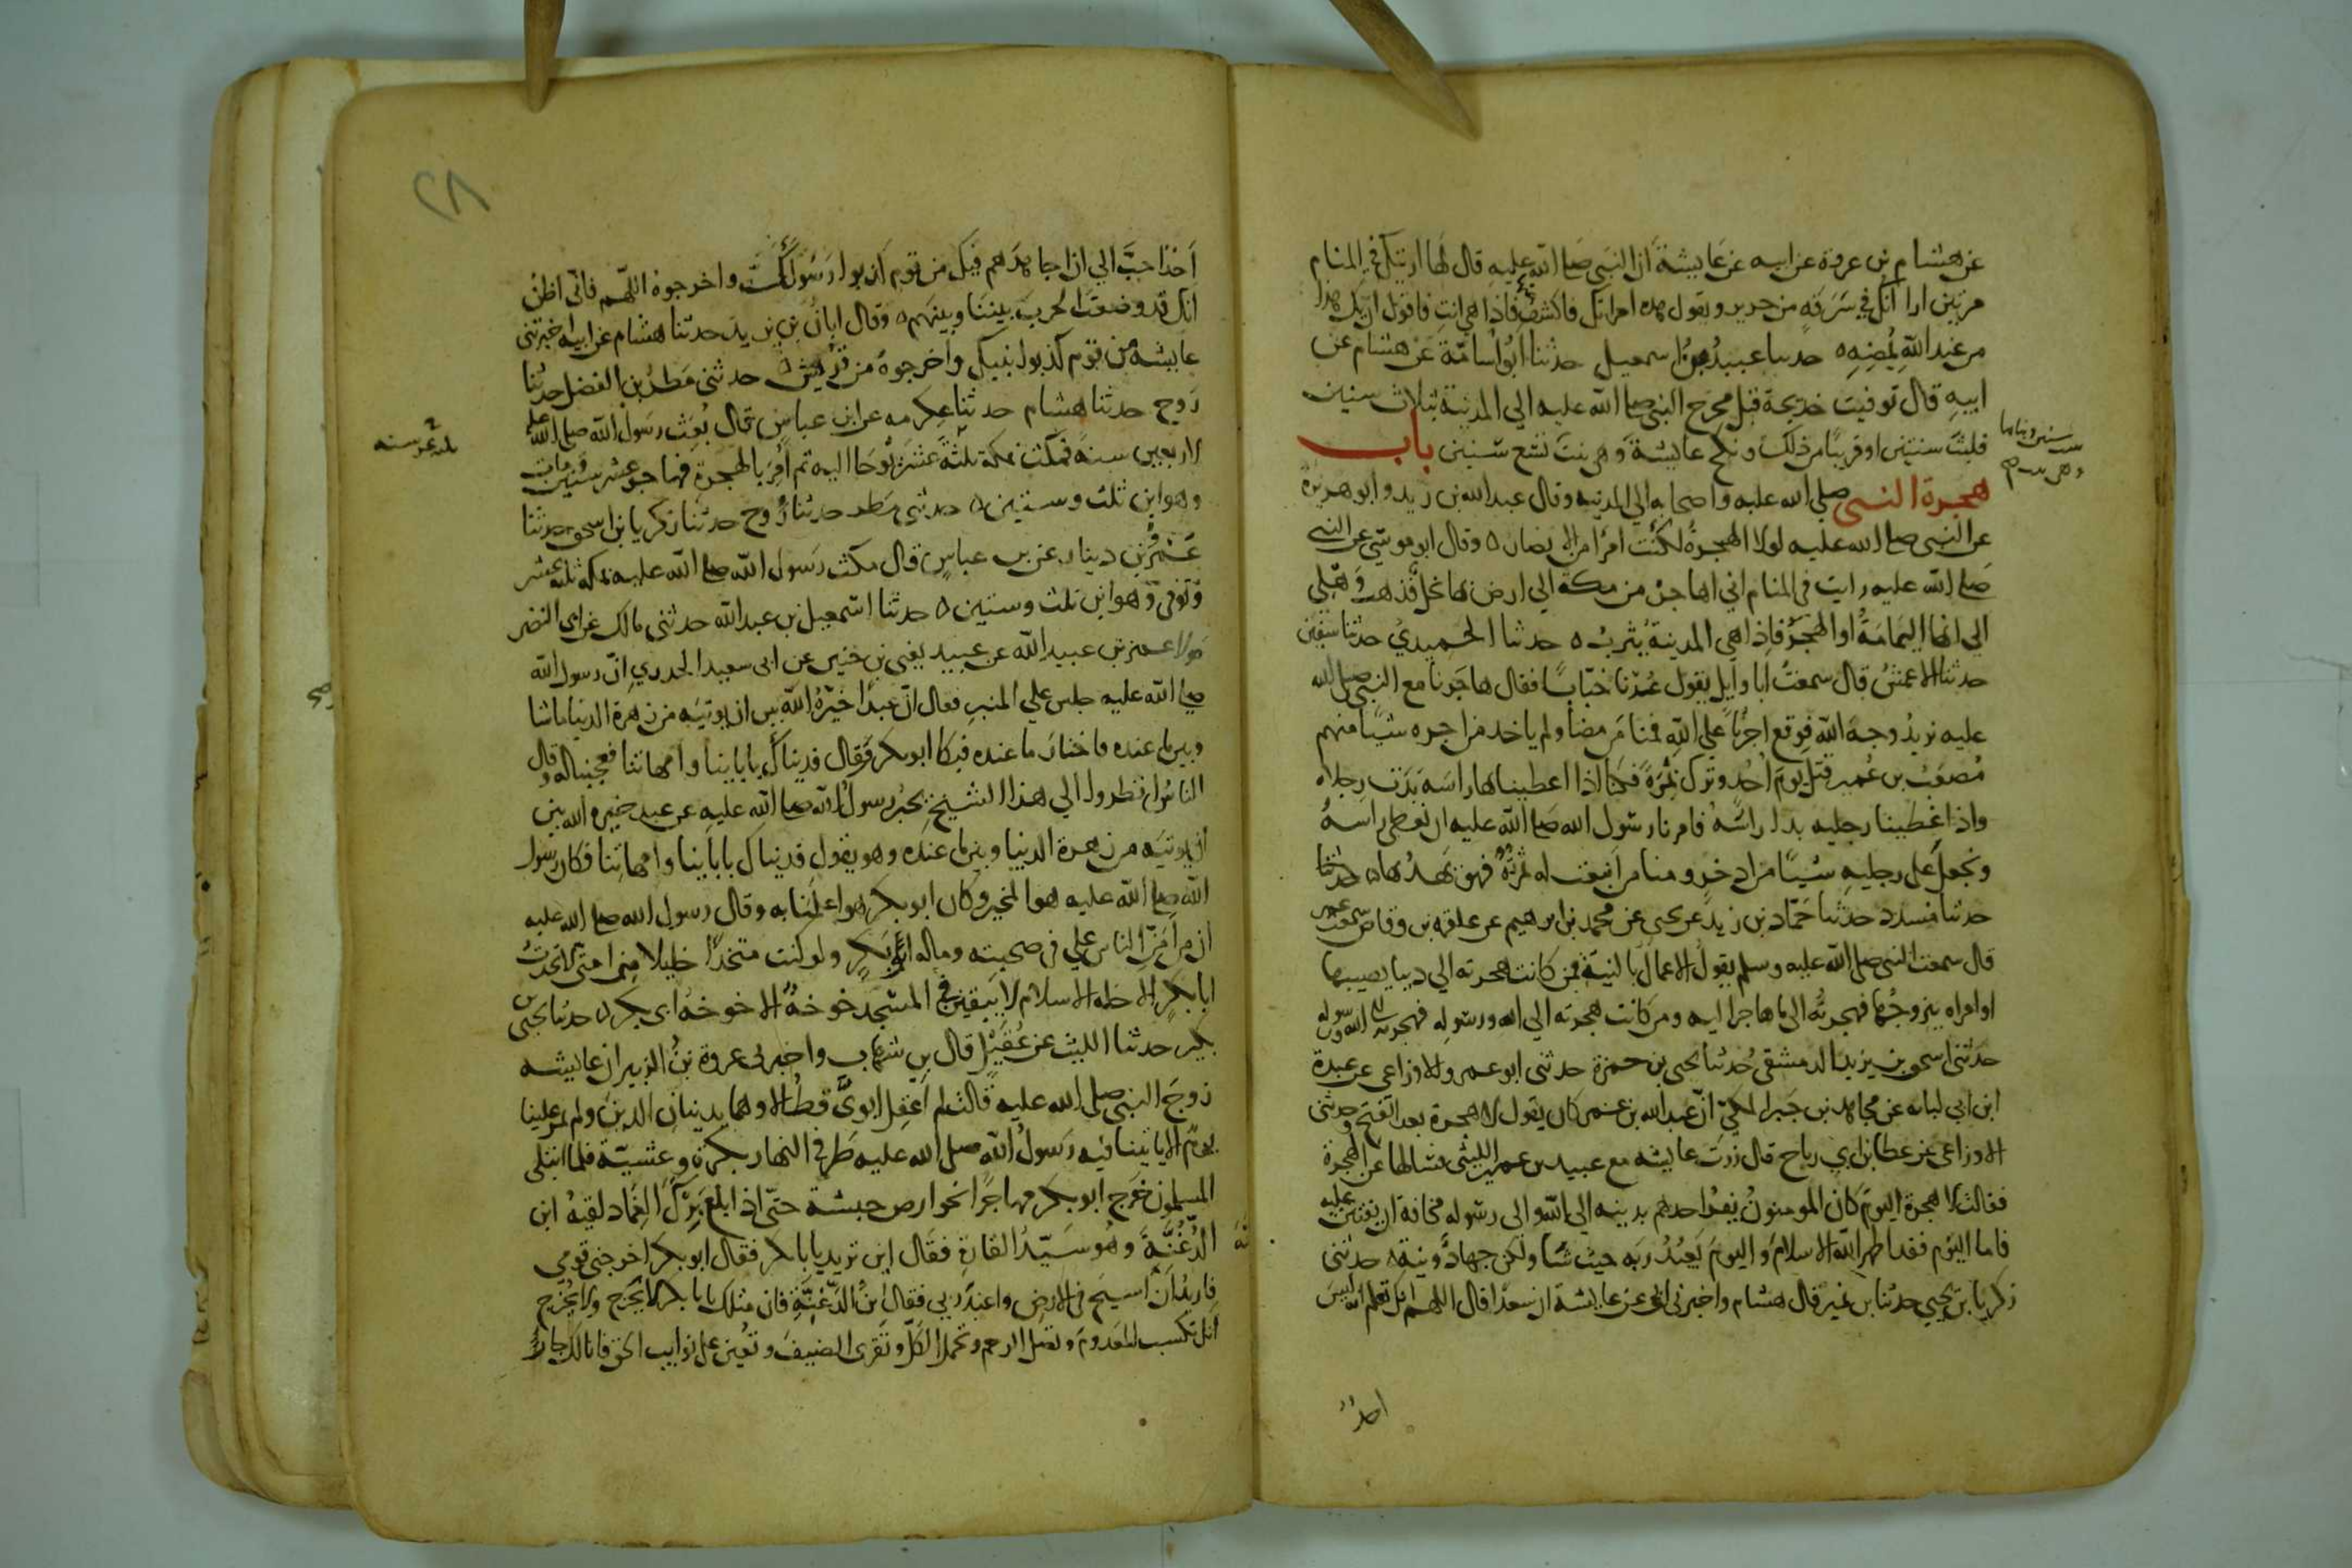 عن هشام بن عروة عن ابيه عن عايشة ان النبي صلى الله عليه قال لها اريتك في المنام
مرتين ارا انك في سرقة من حرير ويقول هذه امراتك فاكشف فاذا هي انت فاقول ان يك هذا
من عند الله يمضه ٥ حدثنا عبيد بن اسمعيل حدثنا ابو اسامة عن هشام عن
ابيه قال توفيت خديجة قبل مخرج النبي صلى الله عليه الى المدينة بثلاث سنين
فلبث سنتين او قريبا من ذلك ونكح عايشة وهي بنت تسع سنين باب
هجرة النبي صلى الله عليه واصحابه الى المدينة وقال عبد الله بن زيد وابو هريرة
عن النبي صلى الله عليه لولا الهجرة لكنت امرا من الانصار ٥ وقال ابو موسى عن النبي
صلى الله عليه رايت في المنام اني اهاجر من مكة الى ارض بها نخل فذهب وهلي
الى انها اليمامة او الهجر فاذا هي المدينة يثرب ٥ حدثنا الحميدي حدثنا سفين
حدثنا الاعمش قال سمعت ابا وايل يقول عدنا خبابا فقال هاجرنا مع النبي صلى الله
عليه نريد وجه الله فوقع اجرنا على الله فمنا من مضا ولم ياخذ من اجره شيا منهم
مصعب بن عمير قتل يوم احد وترك نمرة فكنا اذا اعطينا بها راسه بدت رجلاه
واذا اغطينا رجليه بدا راسه فامرنا رسول الله صلى الله عليه ان نغطي راسه
ونجعل على رجليه شيا من اذخر ومنا من اينعت له ثمرته فهو يهدبها ٥ حدثنا
حدثنا مسدد حدثنا حماد بن زيد عن يحيى عن محمد بن ابرهيم عن علقمة بن وقاص سمعت عمر
قال سمعت النبي صلى الله عليه وسلم يقول الاعمال بالنية فمن كانت هجرته الى دنيا يصيبها
او امراة يتزوجها فهجرته الى ما هاجر اليه ومن كانت هجرته الى الله ورسوله فهجرته الى الله ورسوله
حدثني اسحق بن يزيد الدمشقي حدثنا يحيى بن حمزة حدثني ابو عمرو الاوزاعي عن عبدة
ابن ابي لبابة عن مجاهد بن جبر المكي ان عبد الله بن عمر كان يقول لا هجرة بعد الفتح وحدثني
الاوزاعي عن عطا بن ابي رباح قال زرت عايشة مع عبيد بن عمير الليثي فسالها عن الهجرة
فقالت لا هجرة اليوم كان المومنون يفر احدهم بدينه الى الله والى رسوله مخافة ان يفتن عليه
فاما اليوم فقد اظهر الله الاسلام واليوم يعبد ربه حيث شا ولكن جهاد ونية ٥ حدثني
زكريا بن يحيى حدثنا بن نمير قال هشام واخبرني ابي عن عايشة ان سعدا قال اللهم انك تعلم انه ليس
احد
٢٨
احدا احب الي ان اجاهدهم فيك من قوم كذبوا رسولك واخرجوه اللهم فاني اظن
انك قد وضعت الحرب بيننا وبينهم ٥ وقال ابان بن يزيد حدثنا هشام عن ابيه اخبرتني
عايشة من قوم كذبوا نبيك واخرجوه من قريش ٥ حدثني مطر بن الفضل حدثنا
روح حدثنا هشام حدثنا عكرمة عن ابن عباس قال بعث رسول الله صلى الله عليه
لاربعين سنة فمكث بمكة ثلثة عشر يوحا اليه ثم امر بالهجرة فهاجر عشر سنين ومات
وهو ابن ثلث وستين ٥ حدثني مطر حدثنا روح حدثنا زكريا بن اسحق حدثنا
عمرو بن دينار عن بن عباس قال مكث رسول الله صلى الله عليه بمكة ثلثة عشر
وتوفي وهو ابن ثلث وستين ٥ حدثنا اسمعيل بن عبد الله حدثني مالك عن ابي النضر
مولا عمر بن عبيد الله عن عبيد يعني بن حنين عن ابي سعيد الخدري ان رسول الله
صلى الله عليه جلس على المنبر فقال ان عبدا خيره الله بين ان يوتيه من زهرة الدنيا ما شا
وبين ما عنده فاختار ما عنده فبكا ابو بكر وقال فديناك باباينا وامهاتنا فعجبنا له وقال
الناس انظروا الى هذا الشيخ يخبر رسول الله صلى الله عليه عن عبد خيره الله بين
ان يوتيه من زهرة الدنيا وبين ما عنده وهو يقول فديناك باباينا وامهاتنا فكان رسول
الله صلى الله عليه هو المخير وكان ابو بكر هو اعلمنا به وقال رسول الله صلى الله عليه
ان من امن الناس علي في صحبته وماله ابو بكر ولو كنت متخذا خليلا من امتي لاتخذت
ابا بكر الا خلة الاسلام لا يبقين في المسجد خوخة الا خوخة ابي بكر ٥ حدثنا يحيى بن
بكير حدثنا الليث عن عقيل قال بن شهاب واخبرني عروة بن الزبير ان عايشة
زوج النبي صلى الله عليه قالت لم اعقل ابوي قط الا وهما يدينان الدين ولم يمر علينا
يوم الا ياتينا فيه رسول الله صلى الله عليه طرفي النهار بكرة وعشية فلما ابتلي
المسلمون خرج ابو بكر مهاجرا نحو ارض حبشة حتى اذا بلغ برك الغماد لقيه ابن
الدغنة وهو سيد القارة فقال اين تريد يابا بكر فقال ابو بكر اخرجني قومي
فاريد ان اسيح في الارض واعبد ربي فقال ابن الدغنة فان مثلك يابا بكر لا يخرج ولا يخرج
انك تكسب المعدوم وتصل الرحم وتحمل الكل وتقري الضيف وتعين على نوايب الحق فانا لك جار